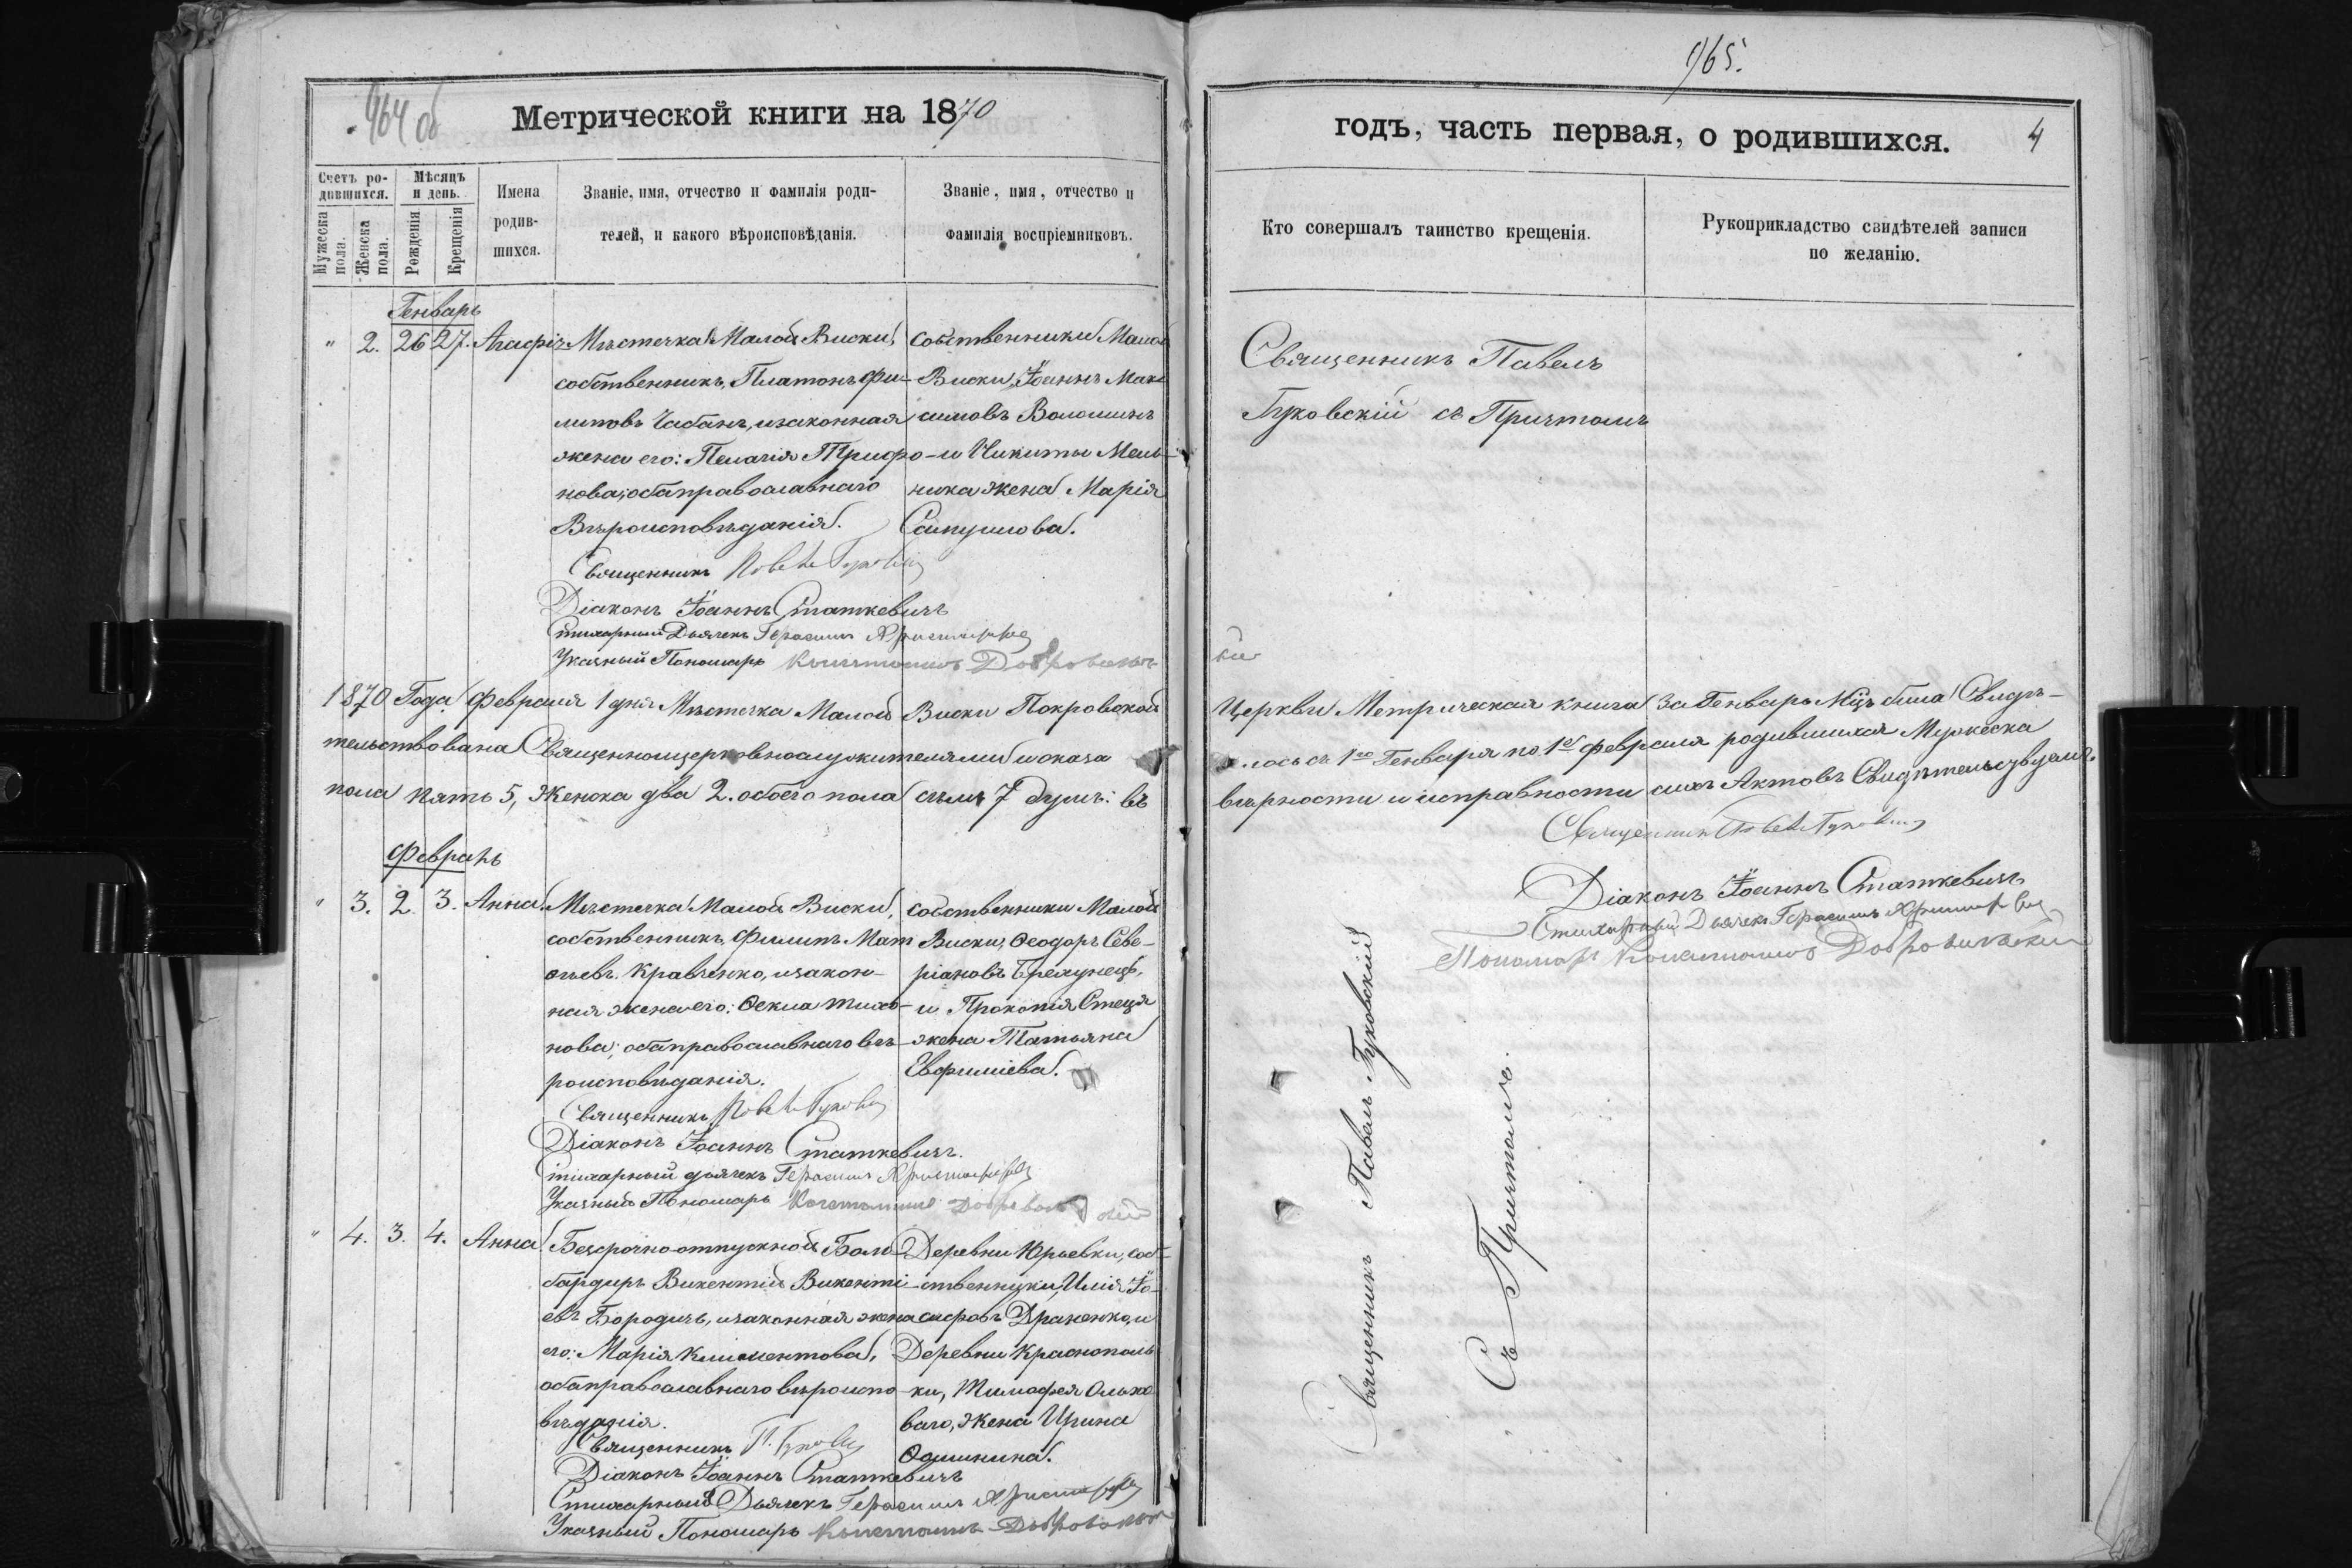 964 об
Метрической книги на 1870
Счетъ ро-
дившихся.
Мѣсяцъ
и день.
Мужеска пола.
Женска пола.
Рожденія
Крещенія
Имена
родив-
шихся.
Званіе, имя, отчество и фамилія роди-
телей, и какого вѣроисповѣданія.
Званіе, имя, отчество и
фамилія воспріемниковъ.
Генварь
" 2. 26 27. Агафія
Мѣстечка Малой Виски,
собственникъ, Платонъ Фи-
липовъ Чабанъ, и законная
жена его: Пелагія Трифо-
нова; оба православнаго
Вѣроисповѣданія.
собственники Малой
Виски, Іоаннъ Мак-
симовъ Волошинъ
и Никиты Мель-
ника жена Марія
Священникъ Павелъ Гуковскій
Діаконъ Іоаннъ Статкевичъ
Стихарный Дьячекъ Герасимъ
Указный Пономарь
1870 Года Февраля 1 дня Мѣстечка Малой Виски Покровской
тельствована Священноцерковнослужителями и оказа
пола пять 5, Женска два 2. обоего пола семь 7 душъ: въ
Февраль
" 3. 2. 3. Анна.
Мѣстечка Малой Виски,
собственникъ, Филипъ Мат
ѳѣевъ Кравченко, и закон-
ная жена его: Ѳекла Тихо-
нова; оба православнаго вѣ-
роисповѣданія.
собственники Малой
Виски, Ѳеодоръ Севе-
ріановъ Брехунецъ,
и Прокопія Стеця
жена Татьяна
Евфиміева.
Священникъ Павелъ Гуковскій
Діаконъ Іоаннъ Статкевичъ.
Стихарный дьячекъ Герасимъ
Указный Пономарь
" 4. 3. 4. Анна
Безсрочноотпускной Бом-
бардиръ Викентій Викенті-
евъ Бородичъ, и законная жена
его: Марія Климентова,
оба православнаго вѣроиспо-
вѣданія.
Деревни Юрьевки, соб-
ственники, Илія Іо-
сифовъ Драненко, и
Деревни Краснополь
ки, Тимофея Ольхо
ваго, жена Ирина
Священникъ П. Гуковскій
Діаконъ Іоаннъ Статкевичъ
Стихарный Дьячекъ Герасимъ
Указный Пономарь
965.
годъ, часть первая, о родившихся.
4
Кто совершалъ таинство крещенія.
Рукоприкладство свидѣтелей записи
по желанію.
Священникъ Павелъ
Гуковскій съ Причтомъ
Церкви Метрическая книга за Генварь Мцъ была Свидѣ-
лось съ 1го Генваря по 1е Февраля родившихся Мужеска
вѣрности и исправности сихъ Актовъ Свидѣтельствуемъ.
Священникъ Павелъ Гуковскій
Діаконъ Іоаннъ Статкевичъ
Стихарный Дьячекъ Герасимъ
Пономарь Добровольскій
Священникъ Павелъ Гуковскій
Съ Причтомъ.